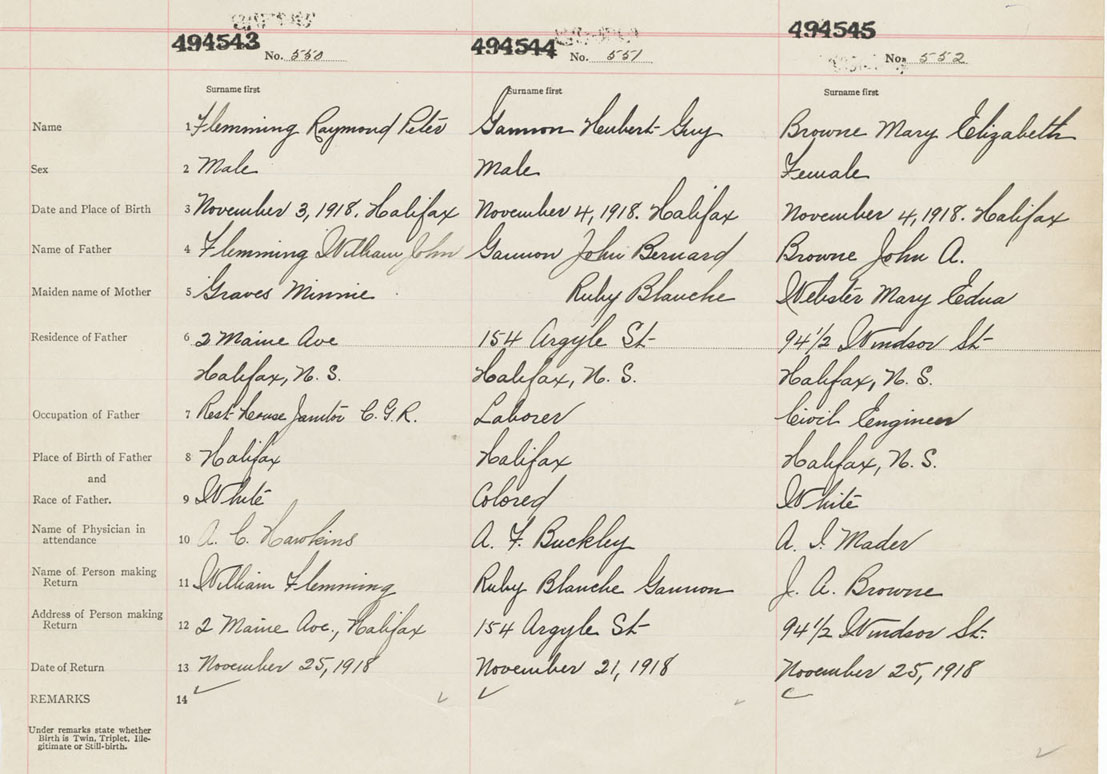 494543 494544 494545
No. 550 No. 551 No. 552
Surname first Surname first Surname first
Name 1 Flemming Raymond Peter Gannon Hubert Guy Browne Mary Elizabeth
Sex 2 Male Male Female
Date and Place of Birth 3 November 3, 1918. Halifax November 4, 1918. Halifax November 4, 1918. Halifax
Name of Father 4 Flemming William John Gannon John Bernard Browne John A.
Maiden name of Mother 5 Graves Minnie Ruby Blanche Webster Mary Edna
Residence of Father 6 2 Maine Ave 154 Argyle St 94 1/2 Windsor St
Halifax, N. S. Halifax, N. S. Halifax, N. S.
Occupation of Father 7 Rest House Janitor C.G.R. Laborer Civil Engineer
Place of Birth of Father 8 Halifax Halifax Halifax, N. S.
and
Race of Father. 9 White Colored White
Name of Physician in
attendance 10 A. C. Hawkins A. F. Buckley A. I. Mader
Name of Person making
Return 11 William Flemming Ruby Blanche Gannon J. A. Browne
Address of Person making
Return 12 2 Maine Ave., Halifax 154 Argyle St 94 1/2 Windsor St.
Date of Return 13 November 25, 1918 November 21, 1918 November 25, 1918
REMARKS 14
Under remarks state whether
Birth is Twin, Triplet, Ille-
gitimate or Still-birth.